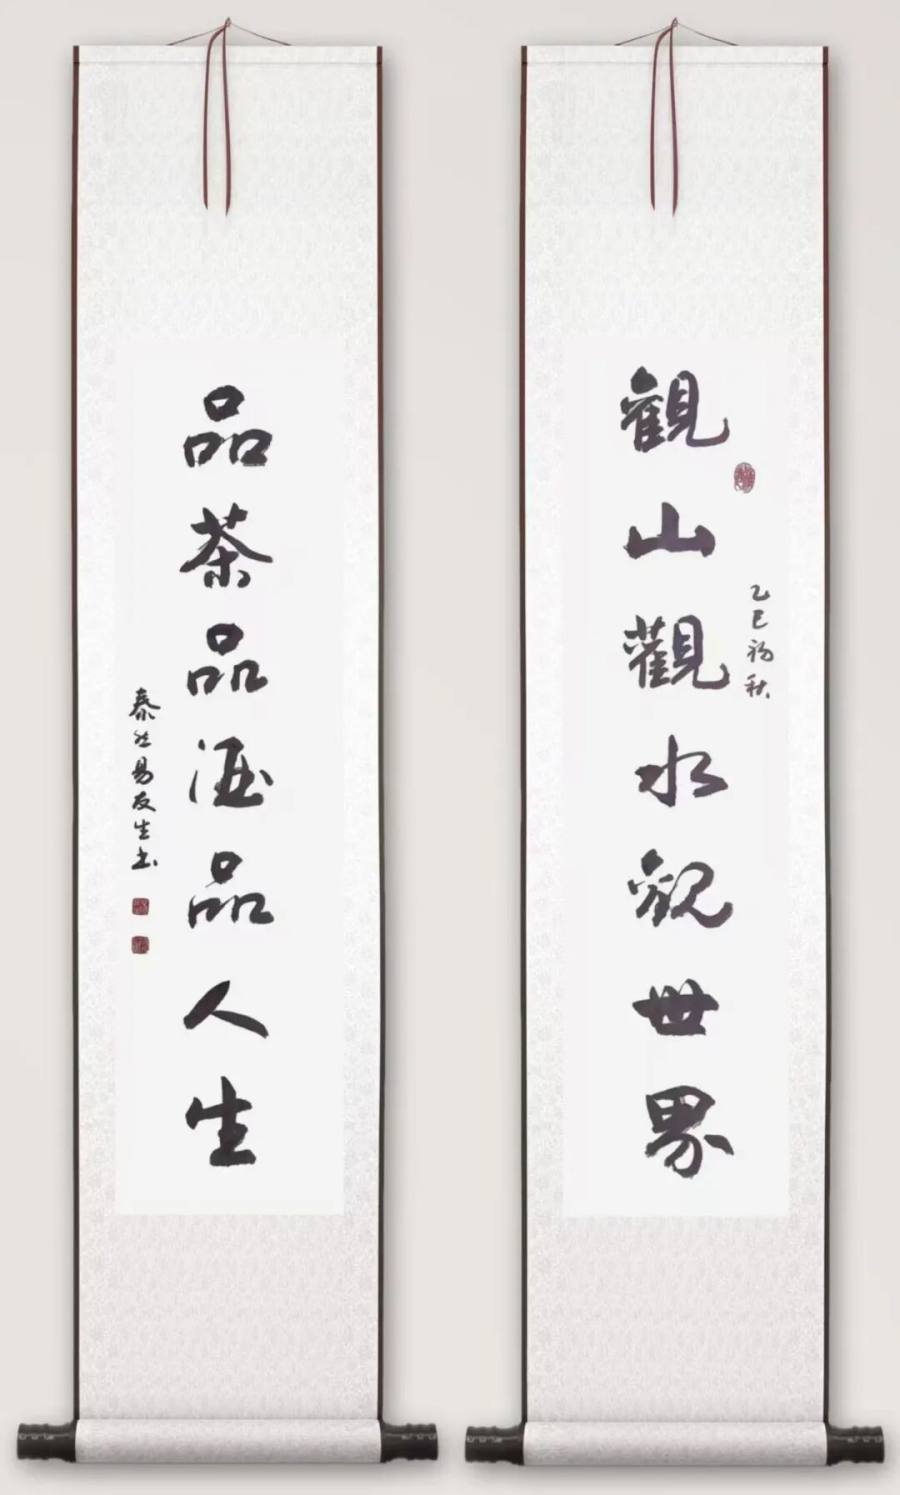 觀山觀水觀世界
乙巳初秋
品茶品酒品人生
泰然易友生书